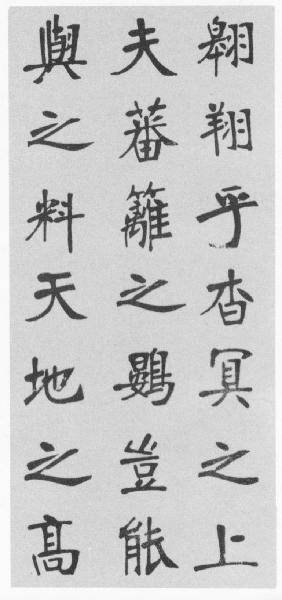 翱翔乎杳冥之上
夫蕃籬之鷃豈能
與之料天地之高